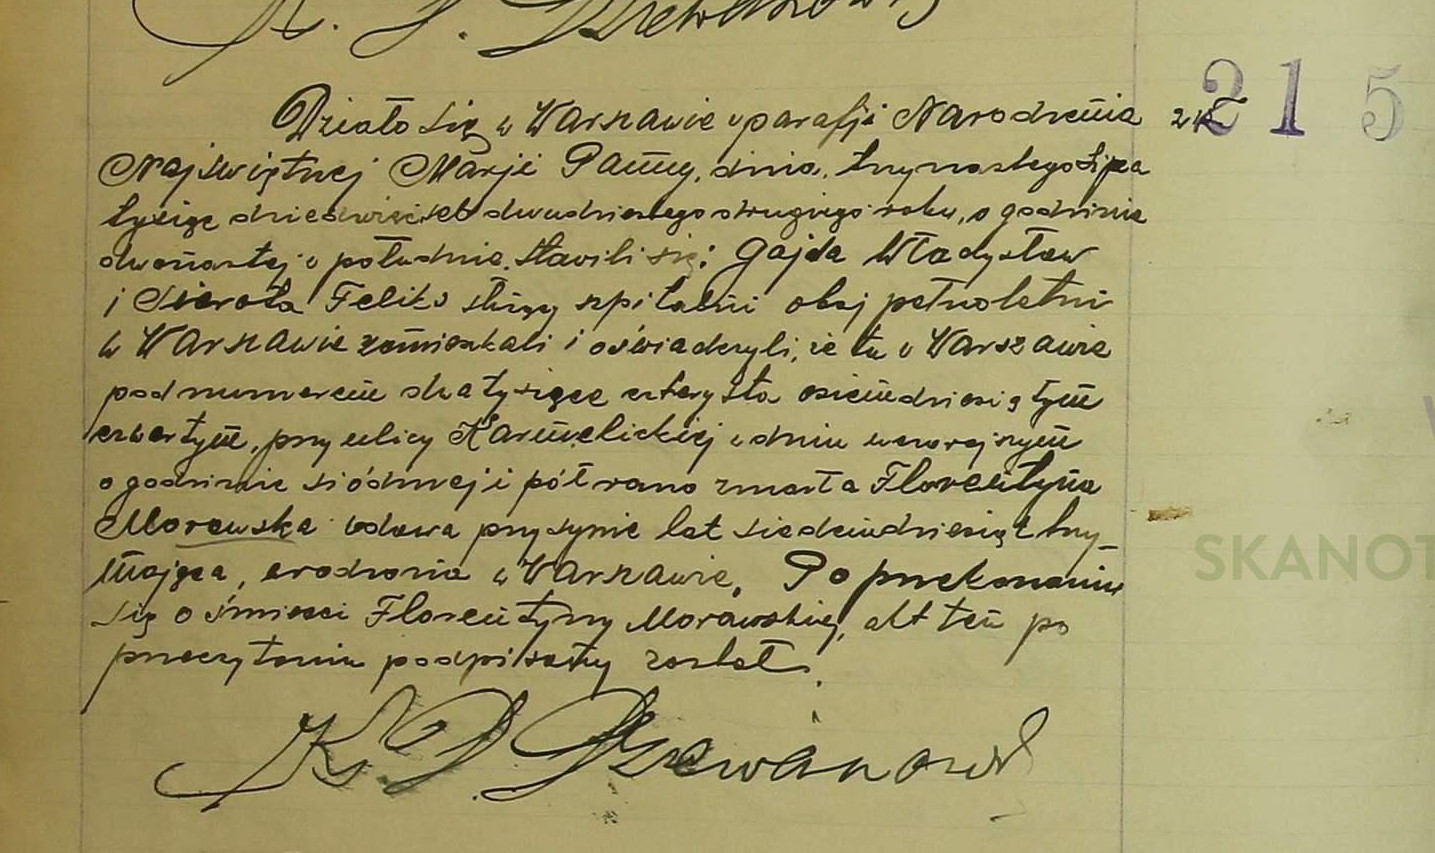 Działo się w Warszawie w parafji Narodzenia
Najświętszej Marji Panny, dnia, trzynastego Lipca
tysiąc dziewięćset dwudziestego drugiego roku, o godzinie
dwunastej w południe. stawili się: Gajda Władysław
i Sierota Feliks słudzy szpitalni obaj pełnoletni
w Warszawie zamieszkali i oświadczyli, że tu w Warszawie
pod numerem dwa tysiące czterysta osiemdziesiątym
czwartym, przy ulicy Karmelickiej w dniu wczorajszym
o godzinie siódmej i pół rano zmarła Florentyna
Morawska wdowa przy synie lat siedemdziesiąt trzy
mająca, urodzona w Warszawie. Po przekonaniu
się o śmierci Florentyny Morawskiej, akt ten po
przeczytaniu podpisany został.
215
SKANOT